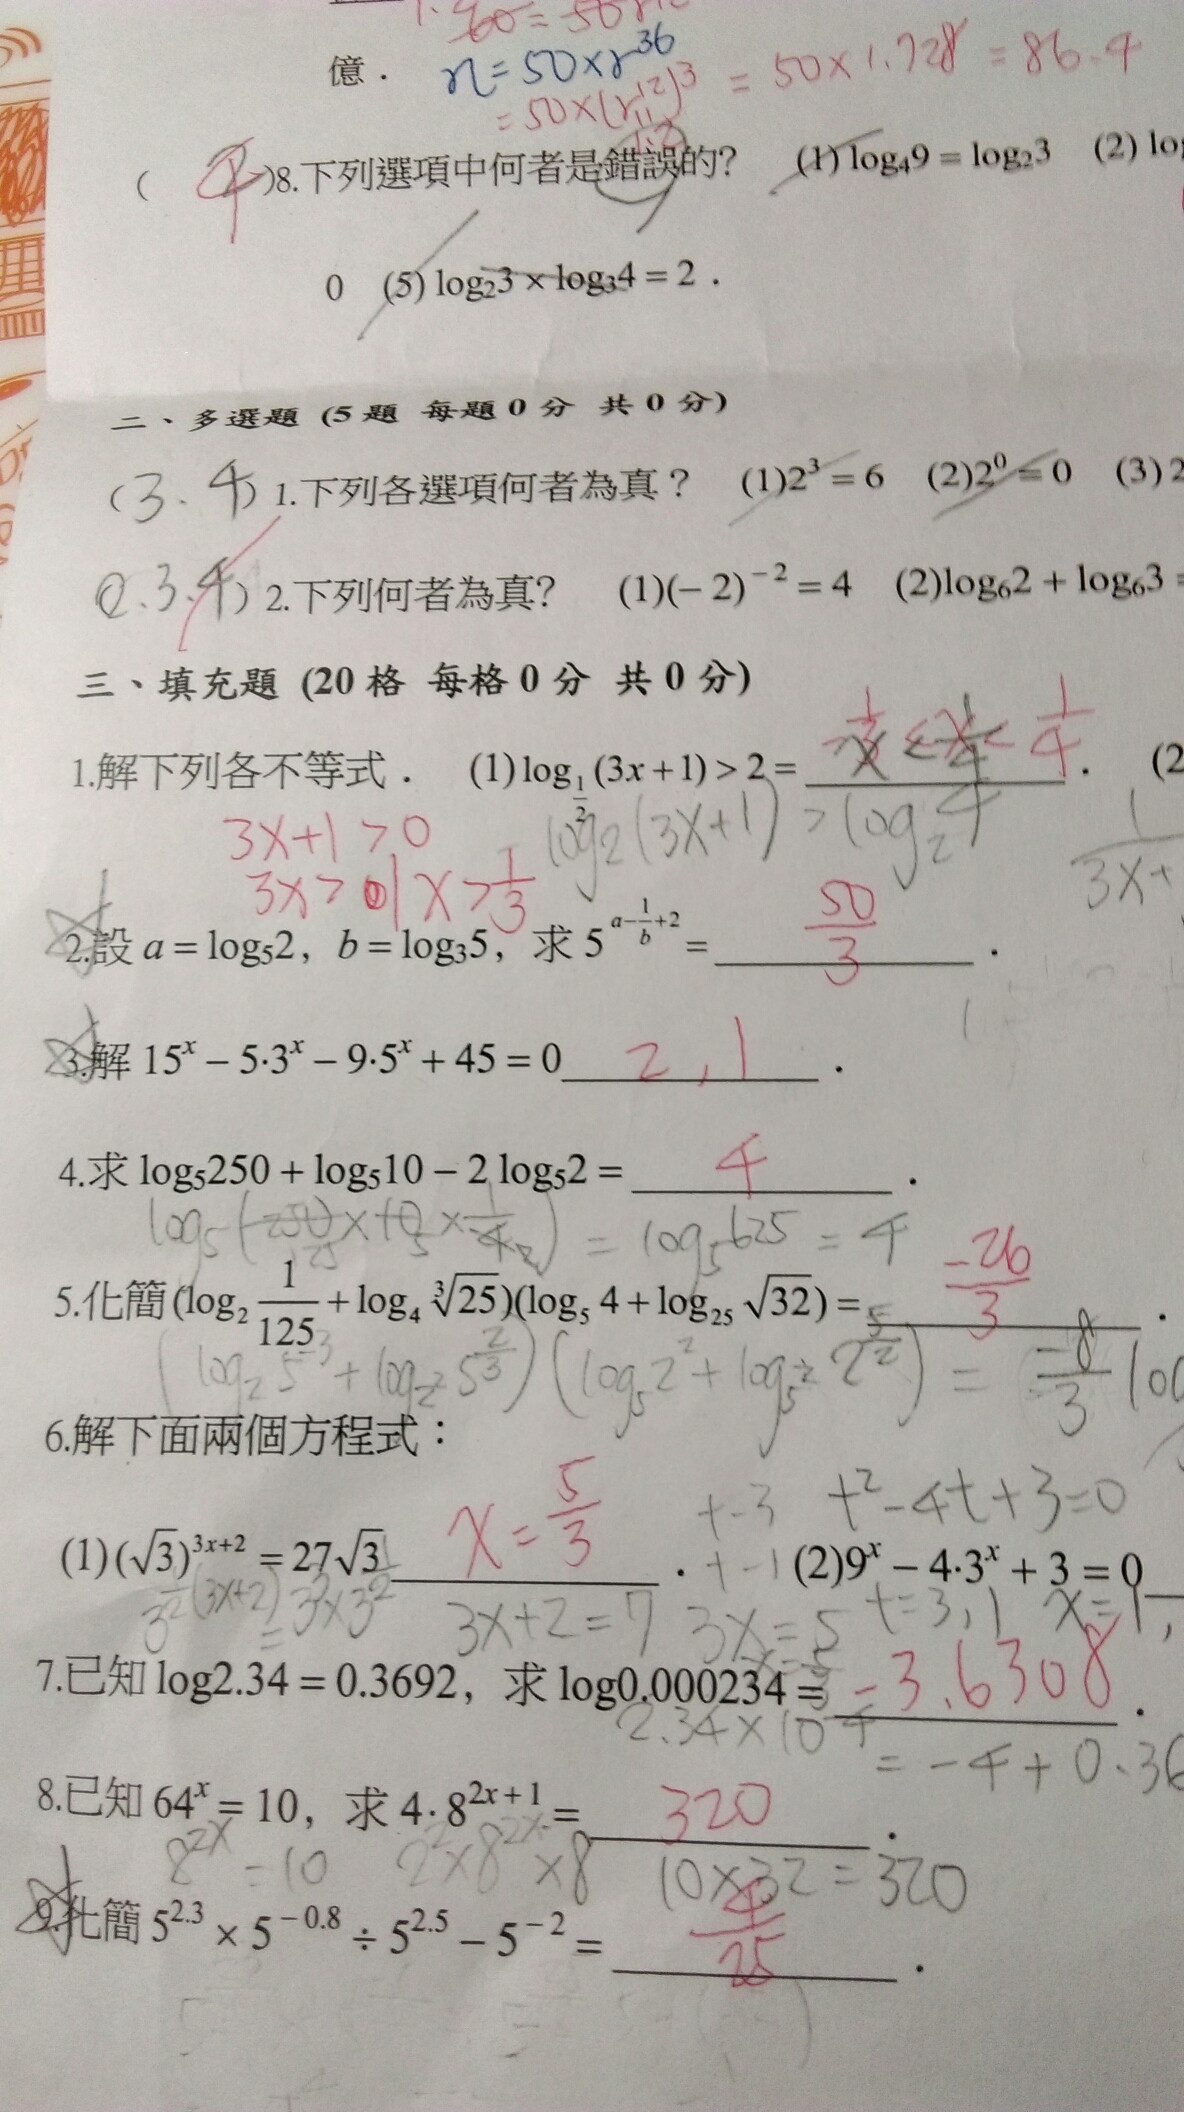 億．　n=50×r³⁶
=50×(r¹²)³ = 50×1.728 = 86.4
( 4 )8.下列選項中何者是錯誤的?　(1) log₄9 = log₂3　(2)
0　(5) log₂3 × log₃4 = 2．
二、多選題 (5 題 每題 0 分 共 0 分)
(3.4) 1.下列各選項何者為真？　(1)2³ = 6　(2)2⁰ = 0　(3) 2
(2.3.4) 2.下列何者為真?　(1)(− 2)⁻² = 4　(2)log₆2 + log₆3 =
三、填充題 (20 格 每格 0 分 共 0 分)
1.解下列各不等式．　(1) log_{1/2} (3x + 1) > 2 = -1/3 < x < 1/4．　(2
3x+1 > 0　log₂(3x+1) > log₂4
3x > 0 | x > 1/3
2.設 a = log₅2，b = log₃5，求 5^{a−1/b+2} = 50/3．
3.解 15ˣ − 5·3ˣ − 9·5ˣ + 45 = 0 2 , 1．
4.求 log₅250 + log₅10 − 2 log₅2 = 4．
= log₅625 = 4
5.化簡 (log₂ 1/125 + log₄ ∛25)(log₅ 4 + log₂₅ √32) = -26/3．
(log₂5⁻³ + log_{2²}5^{2/3})(log₅2² + log_{5²}2^{5/2}) = -8/3
6.解下面兩個方程式：
t-3　t²-4t+3=0
(1) (√3)^{3x+2} = 27√3 x = 5/3．　t-1　(2)9ˣ − 4·3ˣ + 3 = 0
3^{1/2(3x+2)} = 3³×3^{1/2}　3x+2=7　3x=5　t=3,1　x=1,
x=5/3
7.已知 log2.34 = 0.3692，求 log0.000234 = -3.6308．
2.34×10⁻⁴　= -4+0.36
8.已知 64ˣ = 10，求 4·8^{2x+1} = 320．
8^{2x} = 10　2²×8^{2x}×8　10×32=320
9.化簡 5^{2.3} × 5^{−0.8} ÷ 5^{2.5} − 5^{−2} = 4/25．